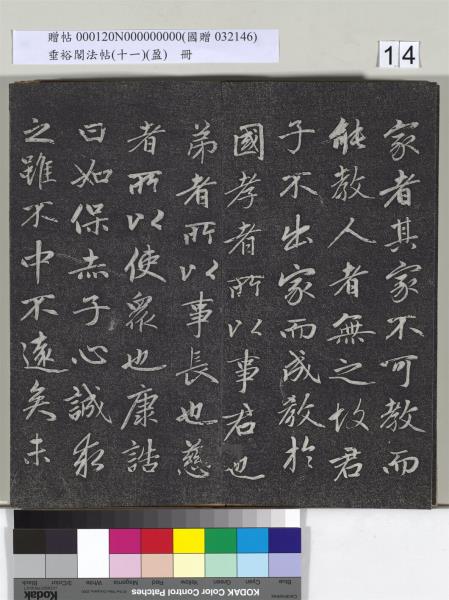 贈帖 000120N000000000(國贈 032146)
垂裕閣法帖(十一)(盈) 冊
14
家者其家不可教而
能教人者無之故君
子不出家而成教於
國孝者所以事君也
弟者所以事長也慈
者所以使眾也康誥
曰如保赤子心誠求
之雖不中不遠矣未
Blue
Cyan
Green
Yellow
Red
Magenta
White
3/Color
Black
Kodak
KODAK Color Control Patches